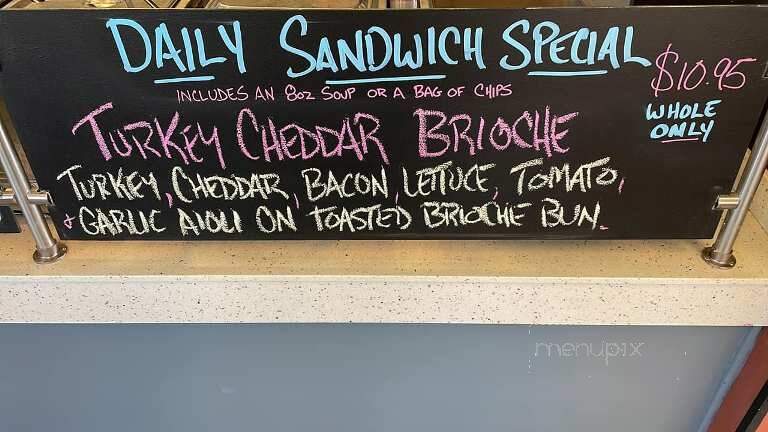 DAILY SANDWICH SPECIAL
$10.95
INCLUDES AN 8OZ SOUP OR A BAG OF CHIPS
WHOLE
ONLY
TURKEY CHEDDAR BRIOCHE
TURKEY, CHEDDAR, BACON, LETTUCE, TOMATO,
+ GARLIC AIOLI ON TOASTED BRIOCHE BUN.
menupix